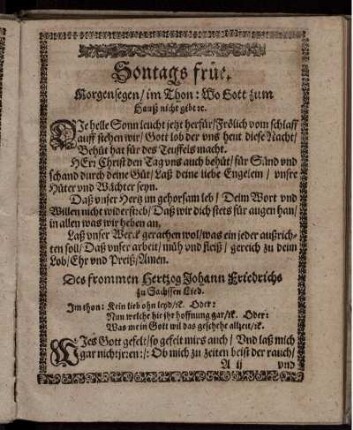 Sontags früe.
Morgensegen / im Thon: Wo Gott zum
Hauß nicht gibt ꝛc.
DIe helle Sonn leucht jetzt herfür / Frölich vom schlaff
auff stehen wir / Gott lob der vns heut diese Nacht /
Behüt hat für des Teuffels macht.
HErr Christ den Tag vns auch behüt / für Sünd vnd
schand durch deine Güt / Laß deine liebe Engelein / vnsre
Hüter vnd Wächter seyn.
Daß vnser Hertz im gehorsam leb / Deim Wort vnd
Willen nicht widerstreb / Daß wir dich stets für augen han /
in allen was wir heben an.
Laß vnser Werck gerathen wol / was ein jeder außrich-
ten soll / Daß vnser arbeit / müh vnd fleiß / gereich zu deim
Lob / Ehr vnd Preiß / Amen.
Des frommen Hertzog Johann Friedrichs
zu Sachssen Lied.
Im thon: Kein lieb ohn leyd / ꝛc. Oder:
Nun welche hie ihr hoffnung gar / ꝛc. Oder:
Was mein Gott wil das geschehe allzeit / ꝛc.
WIes Gott gefelt / so gefelt mirs auch / Vnd laß mich
gar nicht jrren :/: Ob mich zu zeiten beist der rauch /
A ij vnd